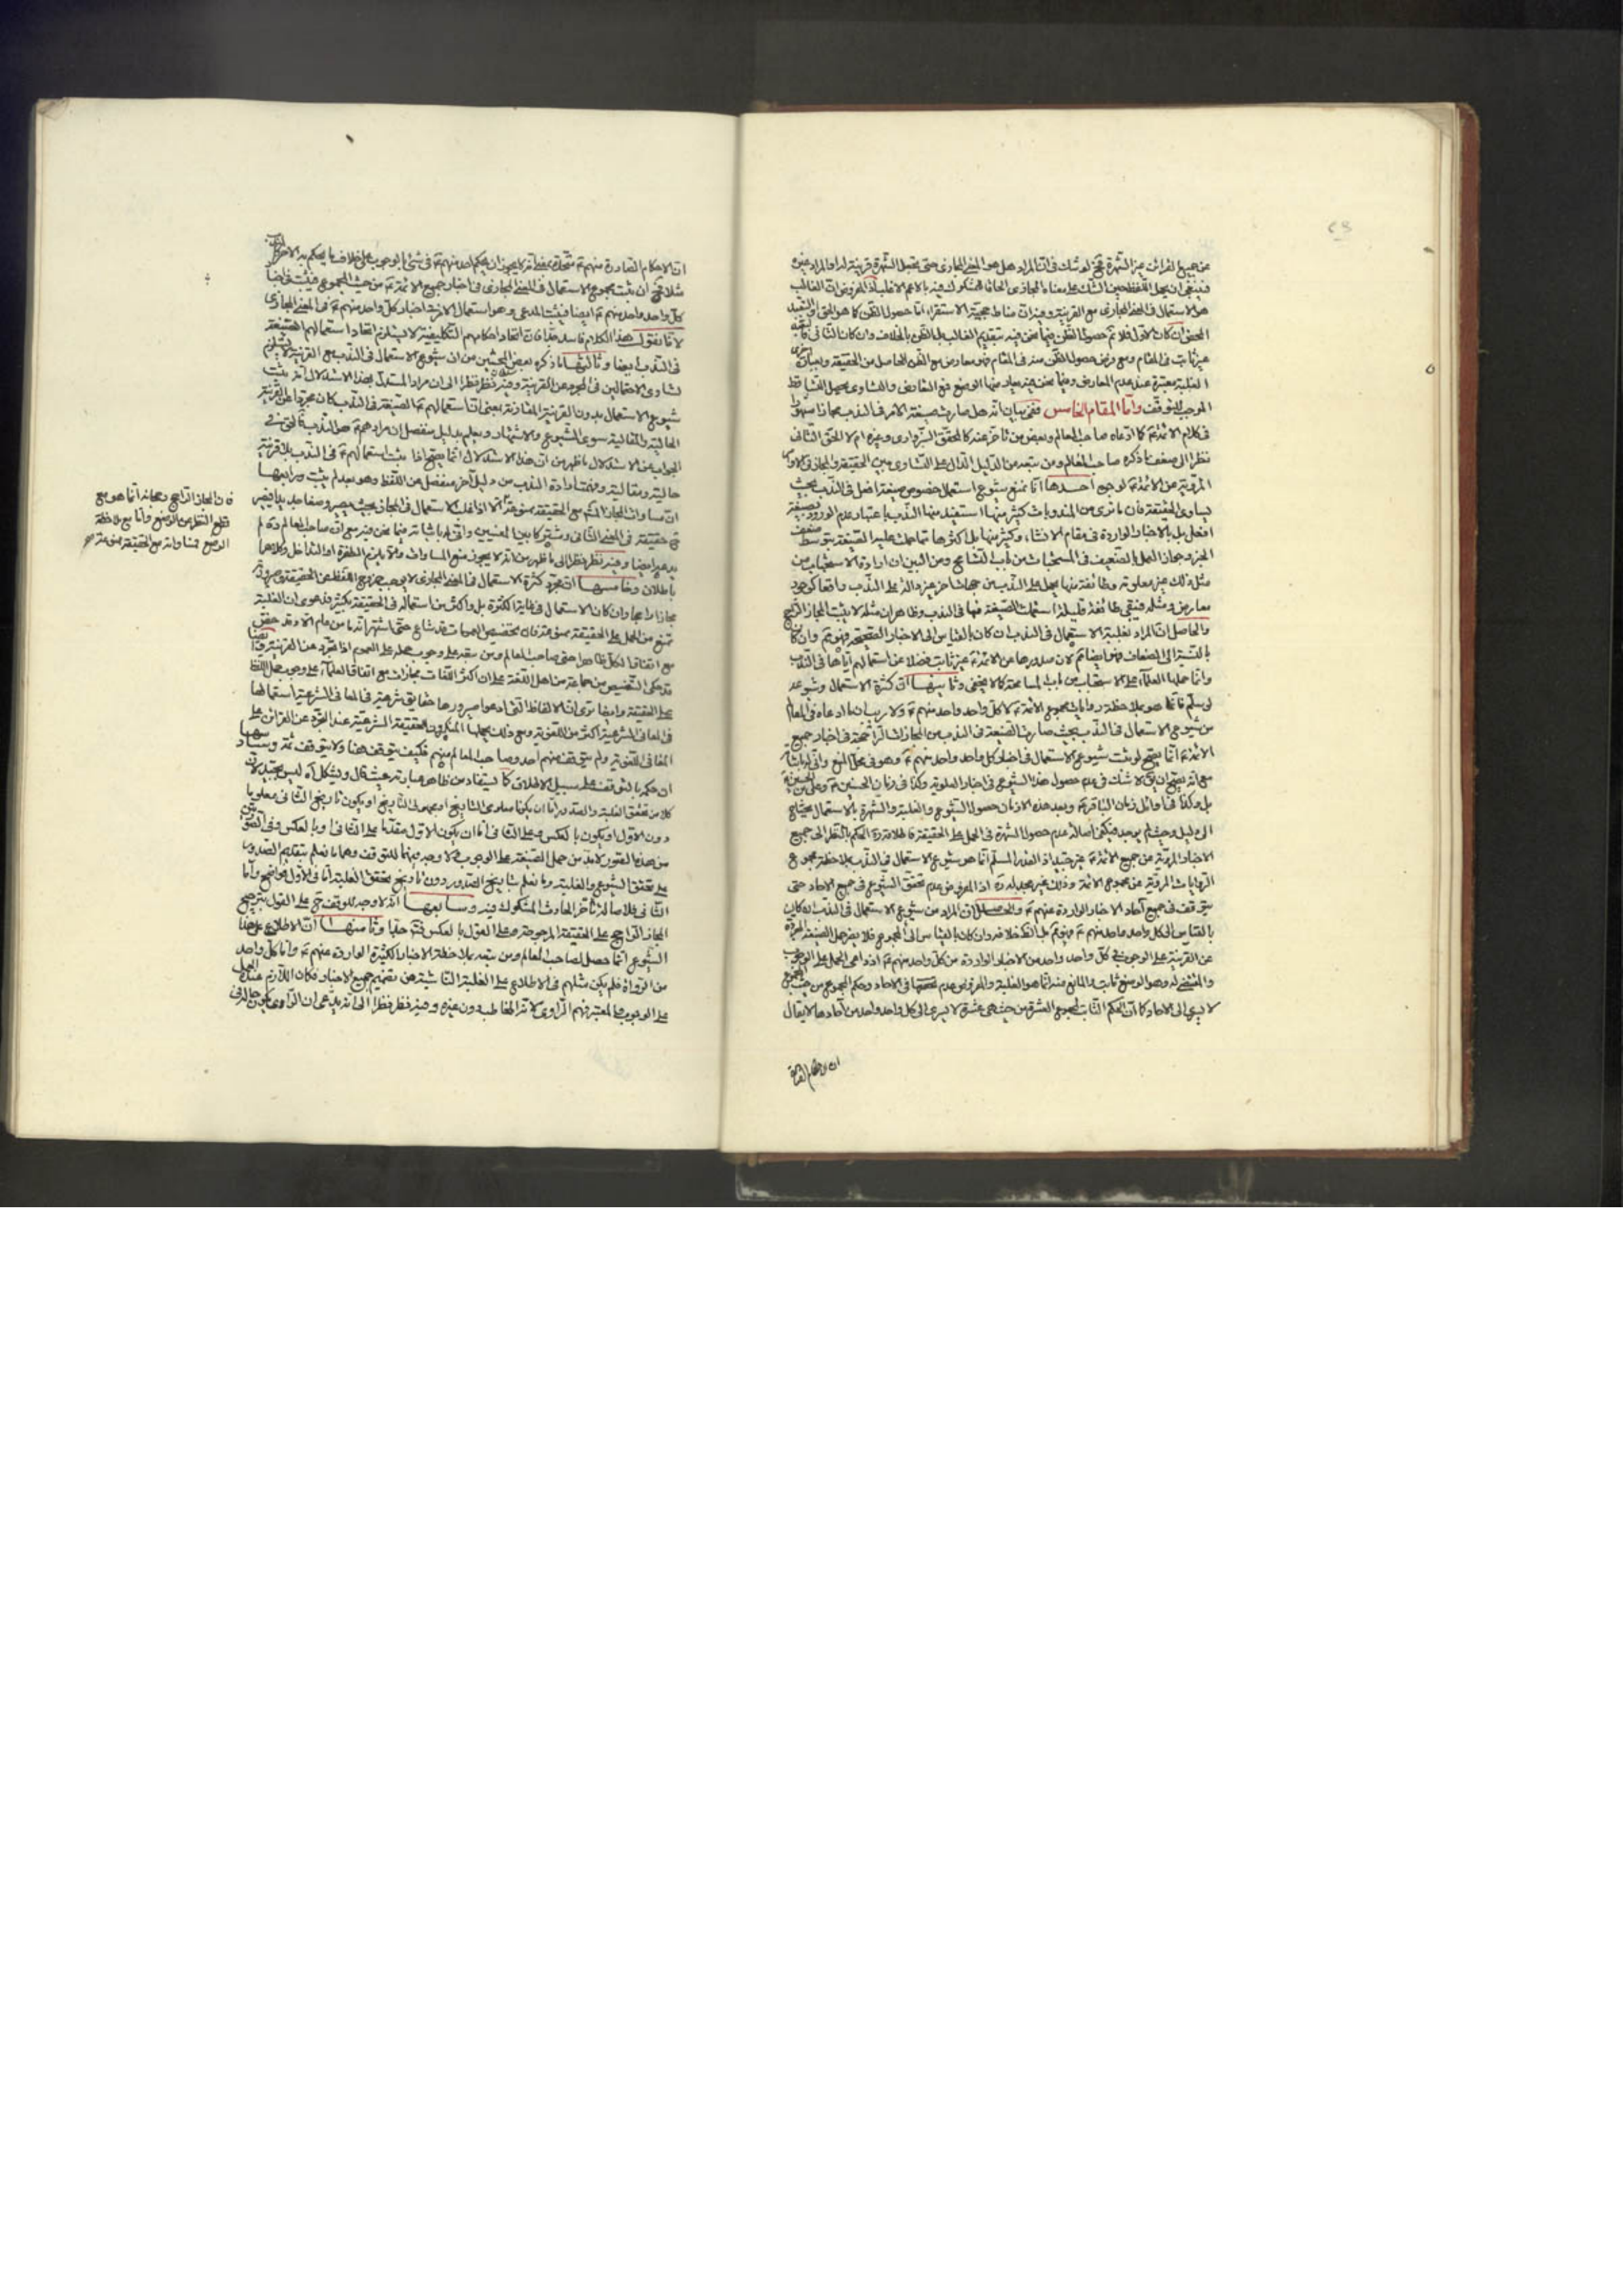 عن جميع القرائن غير الشهرة فح لو شك في ان المراد هل هو المعنى المجازي حتى يجعل الشهرة قرينة له او المراد غيره
فينبغي ان يحمل اللفظ حين الشك على معناه المجازي الحاقا للمشكوك فيه بالاعم الاغلب اذ المفروض ان الغالب
هو الاستعمال في المعنى المجازي مع القرينة وفيه ان مناط حجية الاستقراء اما حصول الظن كما هو الحق او التعبد
المحض ان كان الاول فلا نم حصول الظن فيما نحن فيه بتقديم الغالب بل الظن بالخلاف وان كان الثاني
غير ثابت في المقام ومع فرض حصول الظن منه في المقام فهو معارض مع الظن الحاصل من الحقيقة وبعبارة اخرى
الغلبة معتبرة عند عدم المعارض وفيما نحن فيه يعارضها الوضع فمع التعارض والتساوي يحصل التساقط
الموجب للتوقف واما المقام الخامس ففي بيان انه هل صارت صيغة الامر في الندب مجازا مشهورا
في كلام الائمة ع كما ادعاه صاحب المعالم وبعض من تاخر عنه كالمحقق السبزواري وغيره ام لا الحق الثاني
نظرا الى ضعف ما ذكره صاحب المعالم ومن تبعه من الدليل الدال على التساوي بين الحقيقة والمجاز في
المروية عن الائمة ع لوجوه احدها انا نمنع شيوع استعمال خصوص صيغة افعل في الندب بحيث
يساوي الحقيقة فان ما نرى من المندوبات كثير منها استفيد منها الندب باعتبار عدم الورود بصيغة
افعل بل بالاخبار الواردة في مقام الانشاء وكثير منها بل اكثرها
الخبر وجواز العمل بالضعيف في المستحبات من باب التسامح ومن البين ان ارادة الاستحباب من
مثل ذلك غير معلومة وطائفة منها يحمل على الندب من جهات اخر غير دالة على الندب واقعا كوجود
معارض ومثله فبقي طائفة قليلة استعملت الصيغة فيها في الندب وظاهر ان مثله لا يثبت المجاز الراجح
والحاصل ان المراد بغلبة الاستعمال في الندب ان كان بالقياس الى الاخبار الصحيحة فهو نم وان كان
بالنسبة الى الضعاف فهو ايضا نم لان صدورها عن الائمة ع غير ثابت فضلا عن استعمالهم اياها في الندب
وانما حملها العلماء على الاستحباب من باب المسامحة كما لا يخفى وثانيها ان كثرة الاستعمال وشيوعه
لو سلم فانما هو بملاحظة روايات مجموع الائمة ع لا كل واحد واحد منهم ع ولا ريب ان ما ادعاه في المعالم
من شيوع الاستعمال في الندب بحيث صارت الصيغة في الندب من المجازات الراجحة في اخبار جميع
الائمة ع انما يصح لو ثبت شيوع الاستعمال في اخبار كل واحد واحد منهم ع وهو في محل المنع واني له باثباته
مع انه يصح ان يق لا شك في عدم حصول هذا الشيوع في اخبار العلوية وكذا في زمان الحسنين ع
بل وكذا في اوائل زمان الباقر ع وبعد هذه الازمان حصول الشيوع والغلبة والشهرة بالاستعمال يحتاج
الى دليل وحيث لم يوجد فيكون اصالة عدم حصول الشهرة في الحمل على الحقيقة فاطلاقه ره الحكم بالنظر الى جميع
الاخبار المروية عن جميع الائمة ع غير جيد اذ القدر المسلم انما هو شيوع الاستعمال في الندب بملاحظة مجموع
الروايات المروية عن مجموع الائمة وذلك غير مجد له ره اذ المفروض عدم تحقق الشيوع في جميع الاحاد حتى
يتوقف في جميع آحاد الاخبار الواردة عنهم ع والحاصل ان المراد من شيوع الاستعمال في الندب ان كان
بالقياس الى كل واحد واحد منهم ع فهو نم بل انظر خلافه وان كان بالقياس الى المجموع فلا يضر حمل الصيغة المجردة
عن القرينة على الوجوب في كل واحد واحد من الاخبار الواردة من كل واحد منهم ع اذ دواعي الحمل على الوجوب
والمقتضى له وهو الوضع ثابت والمانع منه انما هو الغلبة والمفروض عدم تحققها في الاحاد وحكم المجموع من حيث المجموع
لا يسري الى الاحاد كما ان الحكم الثابت لمجموع العشرة من حيث هي عشرة لا يسري الى كل واحد واحد من آحادها لا يقال
ان الاحكام الصادرة
ان الاحكام الصادرة منهم ع متحدة بمعنى انه لا يجوز ان يحكم احد منهم ع في شيء بالوجوب على خلاف ما يحكم به الاخر
مثلا فح ان ثبت مجموع الاستعمال في المعنى المجازي في اخبار جميع الائمة ع من حيث المجموع فيثبت في اخبار
كل واحد واحد منهم ع ايضا فيثبت المدعى وهو استعمال الامر في اخبار كل واحد منهم ع في المعنى المجازي
لانا نقول هذا الكلام فاسد جدا فان اتحاد احكامهم التكليفية لا يستلزم اتحاد استعمالهم الصيغة
في الندب ايضا وثالثها ما ذكره بعض المحشين من ان شيوع الاستعمال في الندب مع القرينة لا يستلزم
تساوي الاحتمالين في المجرد عن القرينة وفيه نظر نظرا الى ان مراد المستدل بهذا الاستدلال انه يثبت
شيوع الاستعمال بدون القرينة المقارنة بمعنى ان استعمالهم ع الصيغة في الندب كان مجردا عن القرينة
الحالية والمقالية سوى الشيوع والاشتهار ويعلم بدليل منفصل ان مرادهم ع هو الندب
الجواب عن الاستدلال ما ظهر من ان هذا الاستدلال انما يصح اذا ثبت استعمالهم ع في الندب بلا قرينة
حالية ومقالية وفهمنا ارادة الندب من دليل آخر منفصل عن اللفظ وهو بعد لم يثبت ورابعها
ان مساواة المجاز الحكم مع الحقيقة ممنوعة لانه اذا غلب الاستعمال في المجاز بحيث يصير وضعا جديدا فيصير
ح حقيقة في المعنى الثاني ومشتركا بين المعنيين واني له باثباته فيما نحن فيه مع ان صاحب المعالم ره لم
يدعه ايضا وفيه نظر نظرا الى ما ظهر من انه لا يجوز منع المساواة والا يلزم الطفرة او التداخل وكلاهما
باطلان وخامسها ان مجرد كثرة الاستعمال في المعنى المجازي لا يوجب خروج اللفظ عن الحقيقة وصيرورته
مجازا راجحا وان كان الاستعمال في غاية الكثرة بل واكثر من استعماله في الحقيقة بكثير فدعوى ان الغلبة
تمنع من الحمل على الحقيقة ممنوعة فان تخصيص العمومات قد شاع حتى اشتهر انه ما من عام الا وقد خص
مع اتفاق الكل ظاهرا حتى صاحب المعالم ومن تبعه على وجوب حمله على العموم اذا تجرد عن القرينة وايضا
قد حكى التنصيص من جماعة من اهل اللغة على ان اكثر اللغات مجازات مع اتفاق العلماء على وجوب حمل اللفظ
على الحقيقة وايضا نرى ان الالفاظ التي ادعوا صيرورتها حقايق شرعية في المعاني الشرعية استعمالها
في المعاني الشرعية اكثر من اللغوية ومع ذلك يحملها المنكرون للحقيقة الشرعية عند التجرد عن القرائن على
المعاني اللغوية ولم يتوقف منهم احد وصاحب المعالم منهم فكيف يتوقف هنا ولا يتوقف ثمة وسادسها
ان حكمه بالتوقف على سبيل الاطلاق كما يستفاد من ظاهر عبارته حيث قال ويشكل آه ليس بجيد لان
كلا من تحقق الغلبة والصدور اما ان يكونا معلومي التاريخ او مجهولي التاريخ او يكون تاريخ الثاني معلوما
دون الاول او يكون بالعكس وعلى الثاني اما ان يكون الاول مقدما على الثاني او بالعكس وفي
من هذه الصور لا بد من حمل الصيغة على الوجوب ولا وجه فيهما للتوقف وهما ما نعلم بتقديم الصدور
على تحقق الشيوع والغلبة وما نعلم بتاريخ الصدور دون تاريخ تحقق الغلبة اما في الاول فواضح واما
الثاني فلاصالة تاخر الحادث المشكوك فيه وسابعها انه لا وجه للتوقف ح على القول بترجيح
المجاز الراجح على الحقيقة المرجوحة وعلى القول بالعكس وثامنها ان الاطلاع على هذا
الشيوع انما حصل لصاحب المعالم ومن تبعه بملاحظة الاخبار الكثيرة الواردة منهم ع واما كل واحد
من الرواة فلم يكن مثلهم في الاطلاع على الغلبة الناشية من تتبع جميع الاخبار فكان اللازم عنده الحمل
على الوجوب والمعتبر فهم الراوي لانه المخاطب دون غيره وفيه نظر نظرا الى انه يدعى ان الراوي
فان المجاز الراجح ومجازا انما هو مع
قطع النظر عن الوضع واما مع ملاحظة
الوضع فمساواته مع الحقيقة ممنوعة